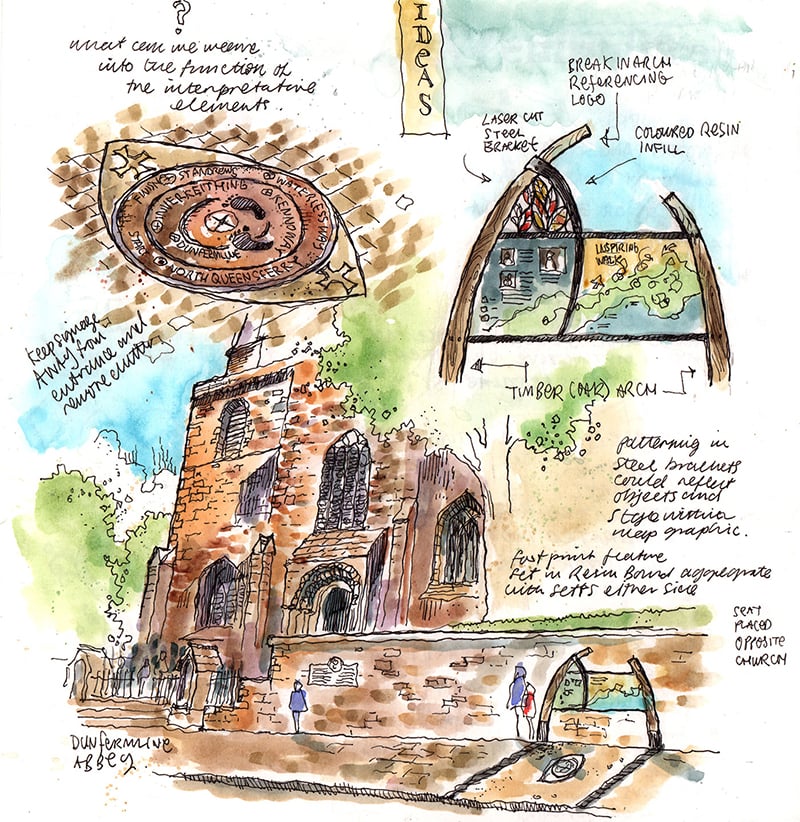 ?
what can we weave
into the function of
the interpretative
elements.
IDEAS
BREAK IN ARCH
REFERENCING
LOGO
LASER CUT
STEEL
BRACKET
COLOURED RESIN
INFILL
FINISH
ST ANDREWS
WATERLESS WAY
INVERKEITHING
KENNOWAY
DUNFERMLINE
START
NORTH QUEENSFERRY
INSPIRING
WALK
Keep signage
AWAY from
entrance and
remove clutter
TIMBER (OAK) ARCH
patterning in
steel brackets
could reflect
objects and
style within
map graphic.
footprint feature
set in Resin Bound aggregate
with setts either side
SEAT
PLACED
OPPOSITE
CHURCH
DUNFERMLINE
ABBEY